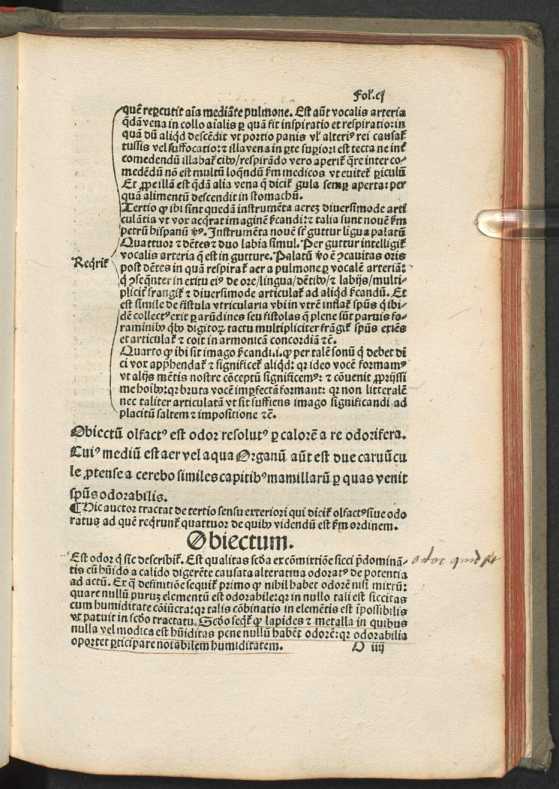 Fol.cj
quē reꝑcutit aīa mediāte pulmone. Est aūt vocalis arteria
q̄dā vena in collo aīalis ꝑ quā fit inspiratio et respiratio: in
qua dū aliqd descēdit vt portio panis vl' alteriꝰ rei causaꝶ
tussis vel suffocatio: ⁊ illa vena in ꝑte suꝑiori est tecta ne in
comedendū illabaꝶ cibꝰ/ respirādo vero aperiꝶ qre inter co-
medēdū nō est multū loqndū ẜm medicos vt euiteꝶ ꝑiculū
Et ꝓpe illā est q̄dā alia vena q̄ diciꝶ gula semꝑ aperta: per
quā alimentū descendit in stomachū.
Tertio ꝙ ibi sint quedā instrumēta aerez diuersimode arti
culātia vt vox acqrat imaginē ẜcandi: ⁊ talia sunt nouē ẜm
petrū hispanū Instrumēta nouē sūt guttur ligua palatū
Quattuor ⁊ dētes ⁊ duo labia simul. Per guttur intelligiꝶ
vocalis arteria q̄ est in gutture. Palatū vo ē ꝯcauitas oris
post dētes in quā respiraꝶ aer a pulmone ꝑ vocalē arteriā:
q̄ ꝯseqnter in exitu eiꝰ de ore/lingua/dētibꝰ/ ⁊ labijs/multi-
pliciꝶ frangiꝶ ⁊ diuersimode articulaꝶ ad aliqd ẜcandū. Et
est simile de fistula vtricularia vbi in vtrē inflaꝶ spūs q̄ ibi-
dē collectꝰ exit ꝑ arūdines seu fistolas q̄ plene sūt paruis fo-
raminibꝰ qbꝰ digitoꝝ tactu multipliciter frāgiꝶ spūs exiēs
et articulaꝶ ⁊ coit in armonicā concordiā ⁊c̄.
Reqriꝶ
Quarto ꝙ ibi sit imago ẜcandi.i.ꝙ per talē sonū q̄ debet di
ci vox apphendaꝶ ⁊ significeꝶ aliqd: qr ideo vocē formamꝰ
vt alijs mētis nostre cōceptū significemꝰ: ⁊ cōuenit ꝓprijssi
me hoibꝰ: qr bruta vocē imꝑfectā formant: qr non litteralē
nec taliter articulatā vt sit sufficiens imago significandi ad
placitū saltem ⁊ impositione ⁊c̄.
Obiectū olfactꝰ est odor resolutꝰ ꝑ calorē a re odorifera.
Cuiꝰ mediū est aer vel aqua Organū aūt est due carūcu
le ꝓtense a cerebo similes capitibꝰ mamillarū ꝑ quas venit
spūs odorabilis.
¶ Hic auctor tractat de tertio sensu exteriori qui diciꝶ olfactꝰ siue odo
ratus ad quē reqrunꝶ quattuor de quibꝰ videndū est ẜm ordinem.
Obiectum.
Est odor q̄ sic describiꝶ. Est qualitas scda ex cōmixtiōe sicci p̄dominā-
tis cū hūido a calido digerēte causata alteratiua odoratꝰ de potentia
ad actū. Ex q̄ definitiōe sequiꝶ primo ꝙ nihil habet odorē nisi mixtū:
quare nullū puruz elementū est odorabile: qr in nullo tali est siccitas
cum humiditate cōiūcta: qr talis cōbinatio in elemētis est ipossibilis
vt patuit in scdo tractatu. Scdo seqꝶ ꝙ lapides ⁊ metalla in quibus
nulla vel modica est hūiditas pene nullū habēt odorē: qr odorabilia
oportet ꝑticipare notabilem humiditatem.
O iiij
odor quid